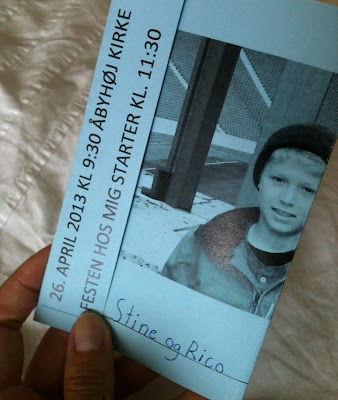 26. APRIL 2013 KL 9:30 ÅBYHØJ KIRKE
FESTEN HOS MIG STARTER KL. 11:30
Stine og Rico